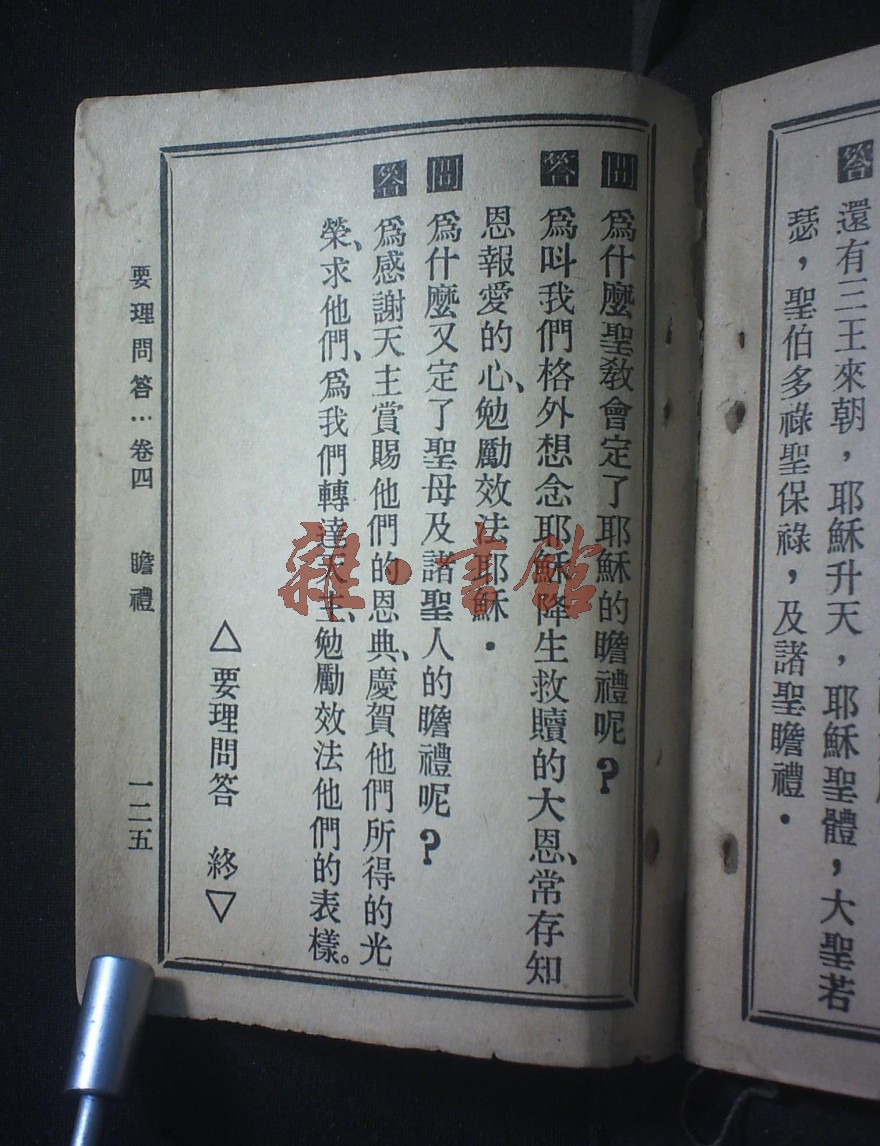 答 還有三王來朝，耶穌升天，耶穌聖體，大聖若
瑟，聖伯多祿聖保祿，及諸聖瞻禮．
問 爲什麼聖教會定了耶穌的瞻禮呢？
答 爲呌我們格外想念耶穌降生救贖的大恩、常存知
恩報愛的心、勉勵效法耶穌．
問 爲什麼又定了聖母及諸聖人的瞻禮呢？
答 爲感謝天主賞賜他們的恩典、慶賀他們所得的光
榮、求他們、爲我們轉達天主、勉勵效法他們的表樣。
△要理問答 終▽
要理問答…卷四 瞻禮 一二五
雜·書館